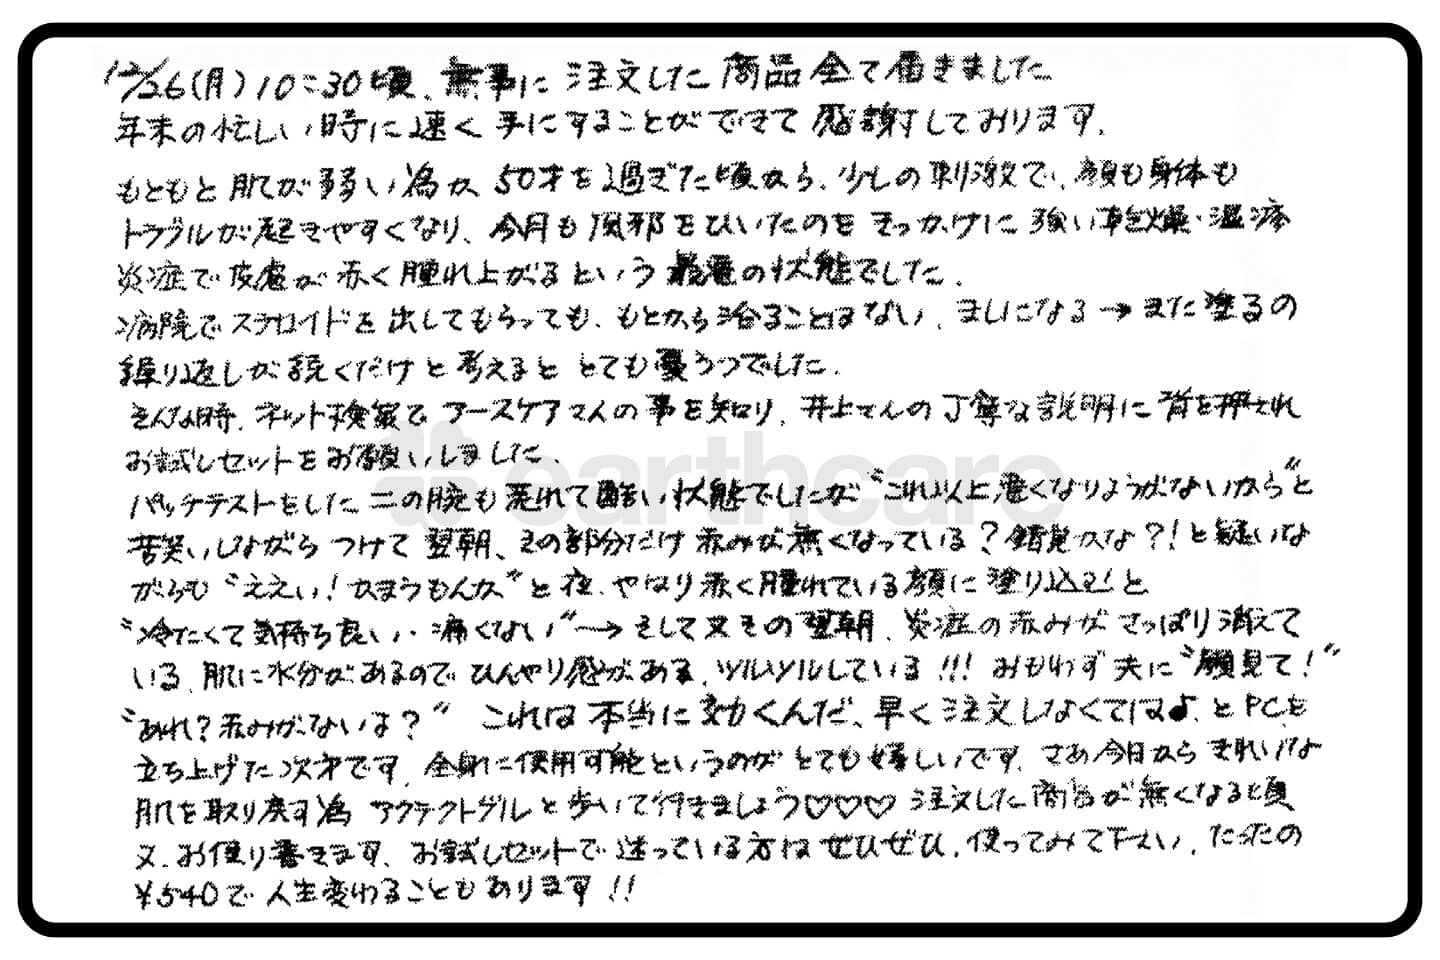 12/26(月)10:30頃、無事に注文した商品全て届きました
年末の忙しい時に速く手にすることができて感謝しております。
もともと肌が弱い為か50才を過ぎた頃から、少しの刺激で、顔も身体も
トラブルが起きやすくなり、今月も風邪をひいたのをきっかけに強い乾燥・湿疹
炎症で皮膚が赤く腫れ上がるという最悪の状態でした。
病院でステロイドを出してもらっても、もとから治ることはない、ましになる→また塗るの
繰り返しが続くだけと考えると とても憂うつでした。
そんな時、ネット検索でアースケアさんの事を知り、井上さんの丁寧な説明に背を押され
お試しセットをお願いしました。
earthcare
パッチテストをした二の腕も荒れて酷い状態でしたが“これ以上悪くなりようがないから”と
苦笑いしながらつけて翌朝、その部分だけ赤みが無くなっている？錯覚かな？！と疑いな
がらも“ええい！かまうもんか”と夜、やはり赤く腫れている顔に塗り込む！と
“冷たくて気持ち良い・痛くない”→そして又その翌朝、炎症の赤みがさっぱり消えて
いる、肌に水分があるのでひんやり感がある、ツルツルしている!!! おもわず夫に“顔見て！”
“あれ？赤みがないね？” これは本当に効くんだ、早く注文しなくては♪、とPCを
立ち上げた次第です。全身に使用可能というのがとても嬉しいです。さあ今日からきれいな
肌を取り戻す為 アクテクトゲルと歩いて行きましょう♡♡♡ 注文した商品が無くなる頃
又、お便り書きます、お試しセットで迷っている方はぜひぜひ、使ってみて下さい、たったの
¥540で人生変わることもあります!!